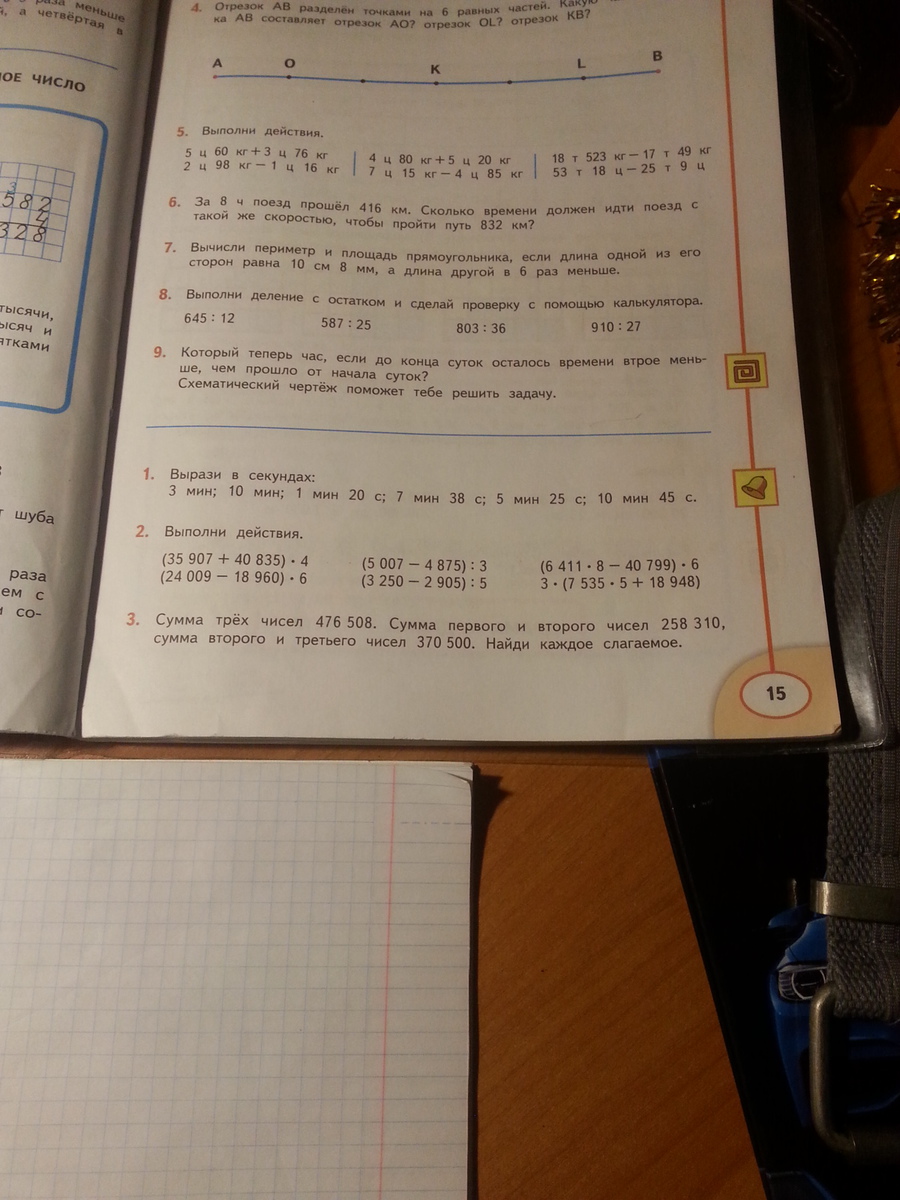 раза меньше
, а четвёртая в
ОЕ ЧИСЛО
3
582
4
328
тысячи,
ысяч и
ятками
шуба
раза
ем с
со-
4. Отрезок АВ разделён точками на 6 равных частей. Какую
ка АВ составляет отрезок АО? отрезок OL? отрезок КВ?
А О К L В
5. Выполни действия.
5 ц 60 кг + 3 ц 76 кг 4 ц 80 кг + 5 ц 20 кг 18 т 523 кг — 17 т 49 кг
2 ц 98 кг — 1 ц 16 кг 7 ц 15 кг — 4 ц 85 кг 53 т 18 ц — 25 т 9 ц
6. За 8 ч поезд прошёл 416 км. Сколько времени должен идти поезд с
такой же скоростью, чтобы пройти путь 832 км?
7. Вычисли периметр и площадь прямоугольника, если длина одной из его
сторон равна 10 см 8 мм, а длина другой в 6 раз меньше.
8. Выполни деление с остатком и сделай проверку с помощью калькулятора.
645 : 12 587 : 25 803 : 36 910 : 27
9. Который теперь час, если до конца суток осталось времени втрое мень-
ше, чем прошло от начала суток?
Схематический чертёж поможет тебе решить задачу.
1. Вырази в секундах:
3 мин; 10 мин; 1 мин 20 с; 7 мин 38 с; 5 мин 25 с; 10 мин 45 с.
2. Выполни действия.
(35 907 + 40 835) · 4 (5 007 — 4 875) : 3 (6 411 · 8 — 40 799) · 6
(24 009 — 18 960) · 6 (3 250 — 2 905) : 5 3 · (7 535 · 5 + 18 948)
3. Сумма трёх чисел 476 508. Сумма первого и второго чисел 258 310,
сумма второго и третьего чисел 370 500. Найди каждое слагаемое.
15